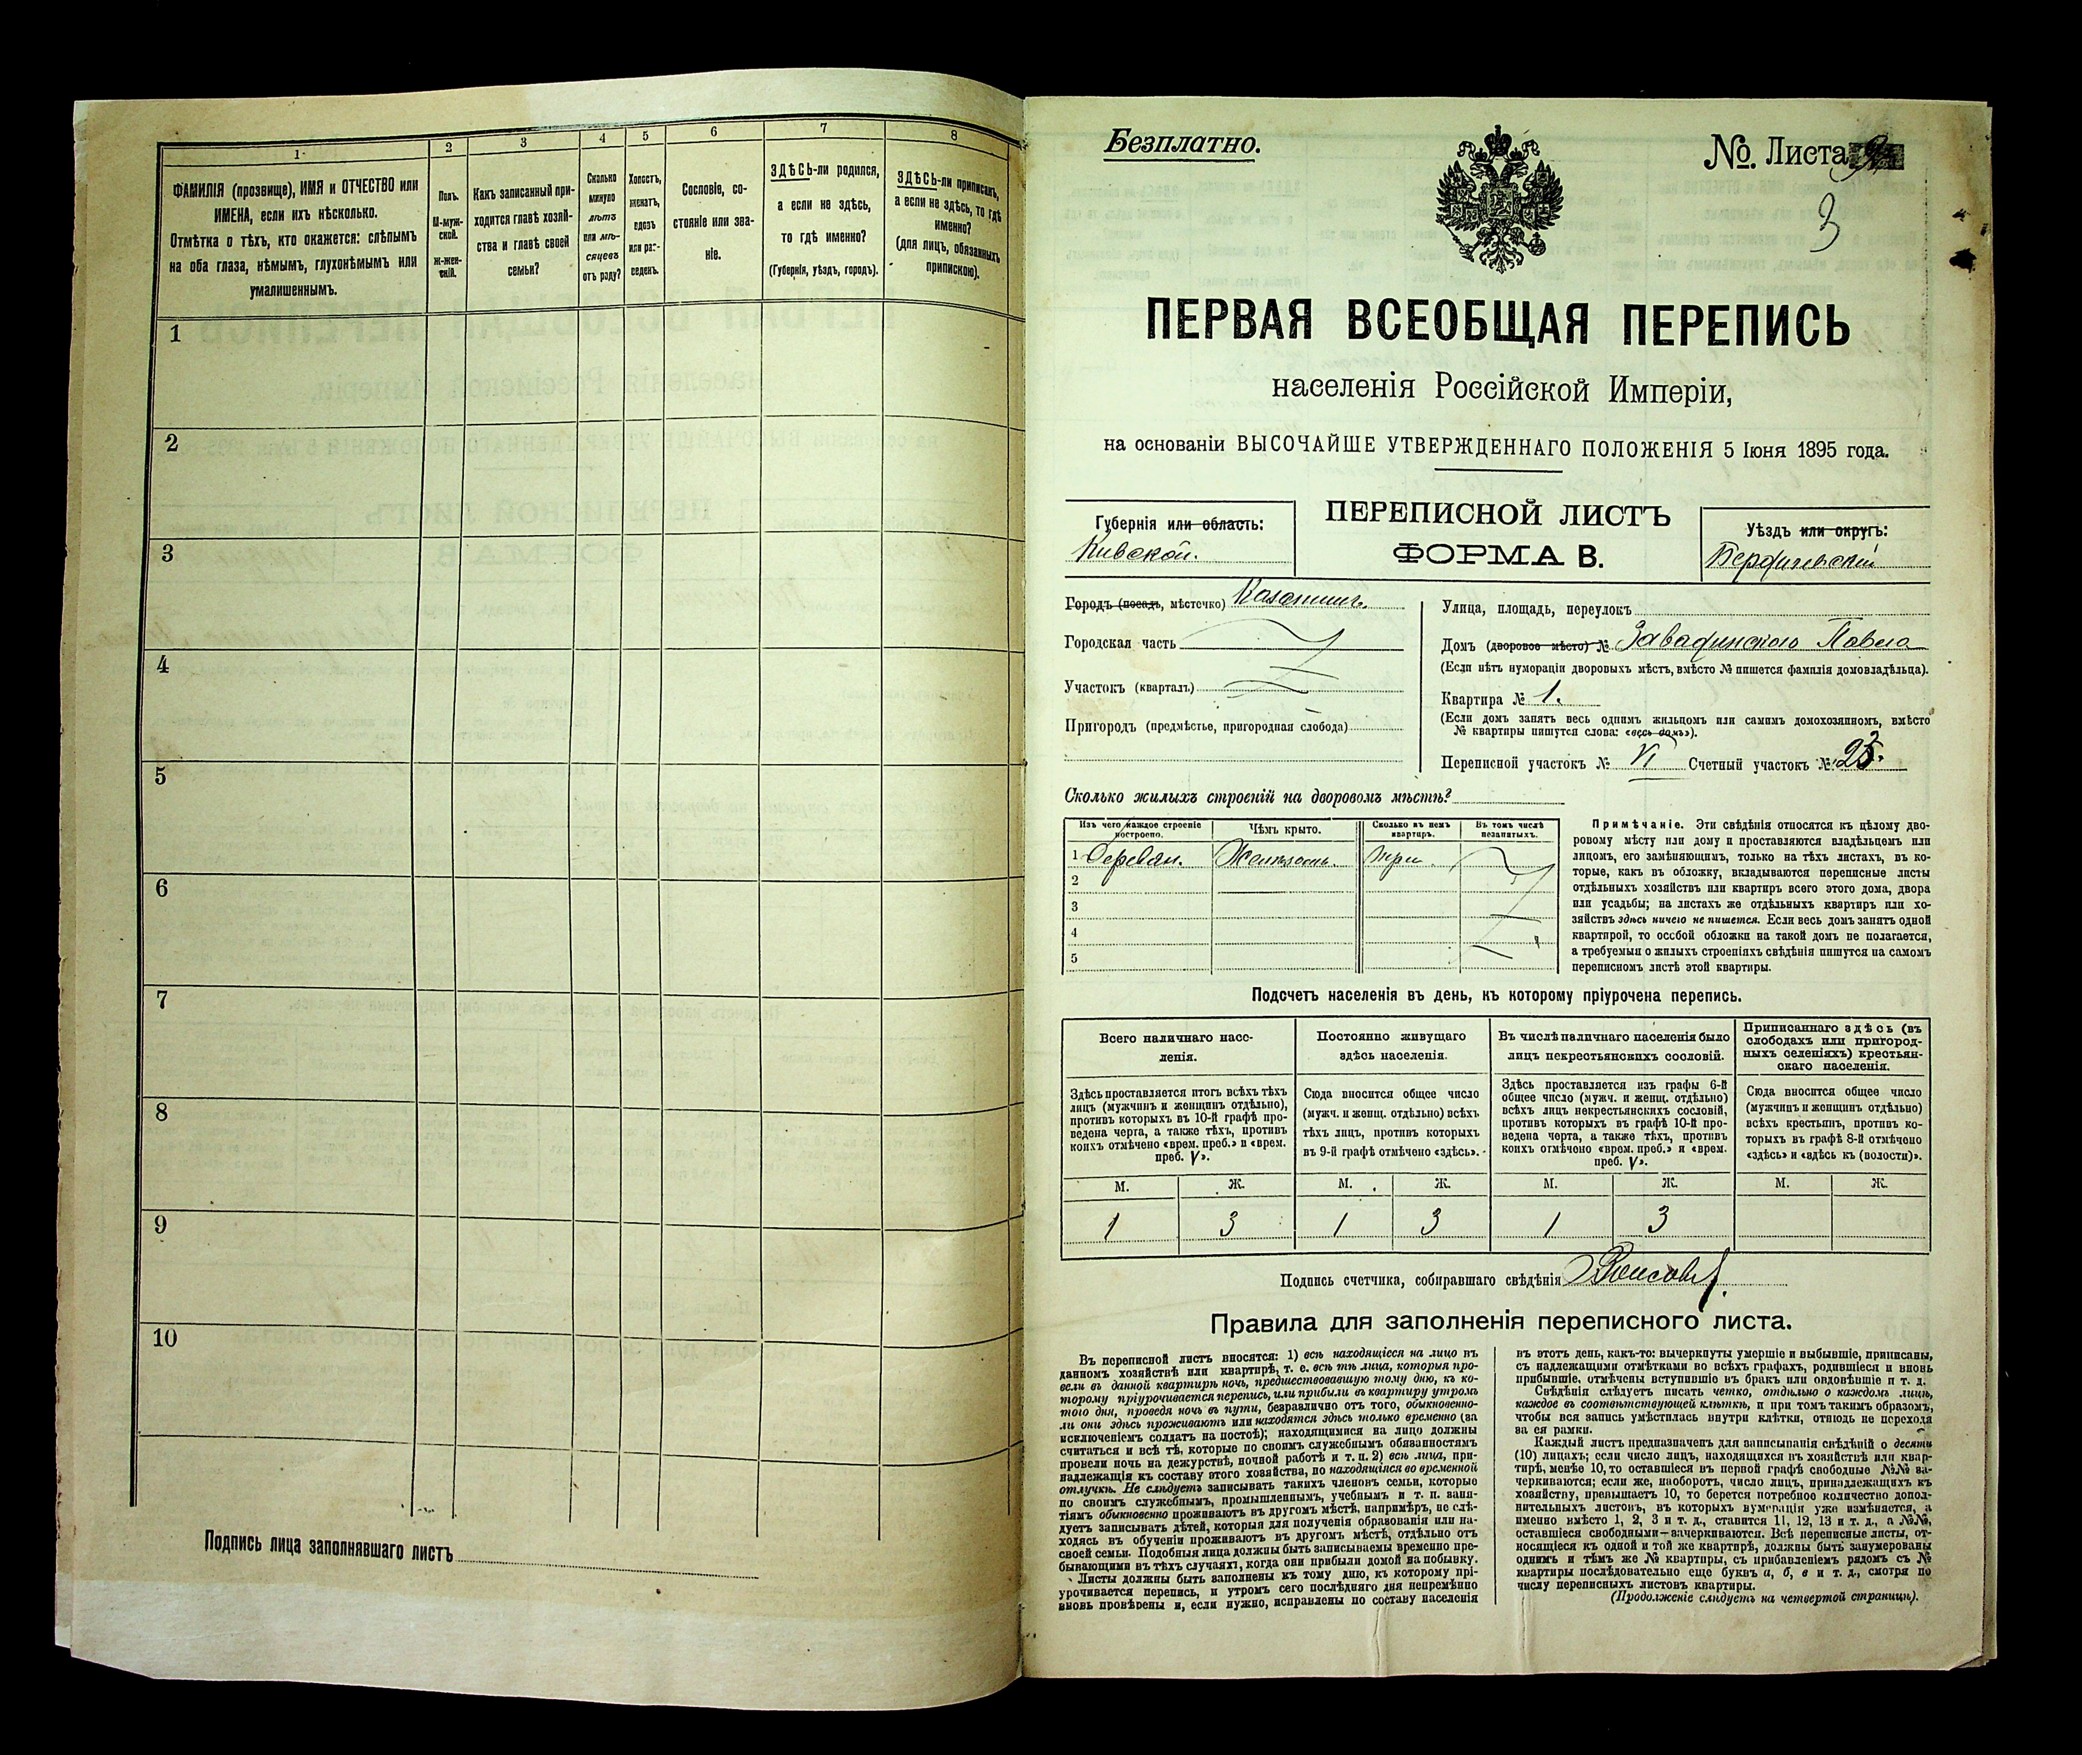 1
ФАМИЛІЯ (прозвище), ИМЯ и ОТЧЕСТВО или
ИМЕНА, если ихъ нѣсколько.
Отмѣтка о тѣхъ, кто окажется: слѣпымъ
на оба глаза, нѣмымъ, глухонѣмымъ или
умалишеннымъ.
2
Полъ.
М-муж-
ской.
ж-жен-
скій.
3
Какъ записанный при-
ходится главѣ хозяй-
ства и главѣ своей
семьи?
4
Сколько
минуло
лѣтъ
или мѣ-
сяцевъ
отъ роду?
5
Холостъ,
женатъ,
вдовъ
или раз-
веденъ.
6
Сословіе, со-
стояніе или зва-
ніе.
7
ЗДѢСЬ-ли родился,
а если не здѣсь,
то гдѣ именно?
(Губернія, уѣздъ, городъ).
8
ЗДѢСЬ-ли приписанъ,
а если не здѣсь, то гдѣ
именно?
(для лицъ, обязанныхъ
припискою).
1
2
3
4
5
6
7
8
9
10
Подпись лица заполнявшаго листъ
Безплатно.
№. Листа
3
ПЕРВАЯ ВСЕОБЩАЯ ПЕРЕПИСЬ
населенія Россійской Имперіи,
на основаніи ВЫСОЧАЙШЕ УТВЕРЖДЕННАГО ПОЛОЖЕНІЯ 5 Іюня 1895 года.
Губернія или область:
Кивской.
ПЕРЕПИСНОЙ ЛИСТЪ
ФОРМА В.
Уѣздъ или округъ:
Бердичевскій
Городъ (посадъ, мѣстечко) Казатинъ.
Городская часть
Участокъ (кварталъ)
Пригородъ (предмѣстье, пригородная слобода)
Улица, площадь, переулокъ
Домъ (дворовое мѣсто) № Завадинского Павла
(Если нѣтъ нумораціи дворовыхъ мѣстъ, вмѣсто № пишется фамилія домовладѣльца).
Квартира № 1.
(Если домъ занятъ весь однимъ жильцомъ или самимъ домохозяиномъ, вмѣсто
№ квартиры пишутся слова: «весь домъ»).
Переписной участокъ № VI Счетный участокъ №
Сколько жилыхъ строеній на дворовомъ мѣстѣ?
Изъ чего каждое строеніе
построено.
Чѣмъ крыто.
Сколько въ немъ
квартиръ.
Въ томъ числѣ
незанятыхъ.
1 Деревян. Желѣзомъ. три.
2
3
4
5
Примѣчаніе. Эти свѣдѣнія относятся къ цѣлому дво-
ровому мѣсту или дому и проставляются владѣльцемъ или
лицомъ, его замѣняющимъ, только на тѣхъ листахъ, въ ко-
торые, какъ въ обложку, вкладываются переписные листы
отдѣльныхъ хозяйствъ или квартиръ всего этого дома, двора
или усадьбы; на листахъ же отдѣльныхъ квартиръ или хо-
зяйствъ здѣсь ничего не пишется. Если весь домъ занятъ одной
квартирой, то особой обложки на такой домъ не полагается,
а требуемыя о жилыхъ строеніяхъ свѣдѣнія пишутся на самомъ
переписномъ листѣ этой квартиры.
Подсчетъ населенія въ день, къ которому пріурочена перепись.
Всего наличнаго насе-
ленія.
Здѣсь проставляется итогъ всѣхъ тѣхъ
лицъ (мужчинъ и женщинъ отдѣльно),
противъ которыхъ въ 10-й графѣ про-
ведена черта, а также тѣхъ, противъ
коихъ отмѣчено «врем. преб.» и «врем.
преб. V».
Постоянно живущаго
здѣсь населенія.
Сюда вносится общее число
(мужч. и женщ. отдѣльно) всѣхъ
тѣхъ лицъ, противъ которыхъ
въ 9-й графѣ отмѣчено «здѣсь».
Въ числѣ наличнаго населенія было
лицъ некрестьянскихъ сословій.
Здѣсь проставляется изъ графы 6-й
общее число (мужч. и женщ. отдѣльно)
всѣхъ лицъ некрестьянскихъ сословій,
противъ которыхъ въ графѣ 10-й про-
ведена черта, а также тѣхъ, противъ
коихъ отмѣчено «врем. преб.» и «врем.
преб. V».
Приписаннаго здѣсь (въ
слободахъ или пригород-
ныхъ селеніяхъ) крестьян-
скаго населенія.
Сюда вносится общее число
(мужчинъ и женщинъ отдѣльно)
всѣхъ крестьянъ, противъ ко-
торыхъ въ графѣ 8-й отмѣчено
«здѣсь» и «здѣсь къ (волости)».
М. Ж. М. Ж. М. Ж. М. Ж.
1 3 1 3 1 3
Подпись счетчика, собиравшаго свѣдѣнія
Правила для заполненія переписного листа.
Въ переписной листъ вносятся: 1) всѣ находящіеся на лицо въ
данномъ хозяйствѣ или квартирѣ, т. е. всѣ тѣ лица, которыя про-
вели въ данной квартирѣ ночь, предшествовавшую тому дню, къ ко-
торому пріурочивается перепись, или прибыли въ квартиру утромъ
того дня, проведя ночь въ пути, безразлично отъ того, обыкновенно-
ли они здѣсь проживаютъ или находятся здѣсь только временно (за
исключеніемъ солдатъ на постоѣ); находящимися на лицо должны
считаться и всѣ тѣ, которые по своимъ служебнымъ обязанностямъ
провели ночь на дежурствѣ, ночной работѣ и т. п. 2) всѣ лица, при-
надлежащія къ составу этого хозяйства, но находящіяся во временной
отлучкѣ. Не слѣдуетъ записывать такихъ членовъ семьи, которые
по своимъ служебнымъ, промышленнымъ, учебнымъ и т. п. заня-
тіямъ обыкновенно проживаютъ въ другомъ мѣстѣ, напримѣръ, не слѣ-
дуетъ записывать дѣтей, которыя для полученія образованія или на-
ходясь въ обученіи проживаютъ въ другомъ мѣстѣ, отдѣльно отъ
своей семьи. Подобныя лица должны быть записываемы временно пре-
бывающими въ тѣхъ случаяхъ, когда они прибыли домой на побывку.
Листы должны быть заполнены къ тому дню, къ которому прі-
урочивается перепись, и утромъ сего послѣдняго дня непремѣнно
вновь провѣрены и, если нужно, исправлены по составу населенія
въ этотъ день, какъ-то: вычеркнуты умершіе и выбывшіе, приписаны,
съ надлежащими отмѣтками во всѣхъ графахъ, родившіеся и вновь
прибывшіе, отмѣчены вступившіе въ бракъ или овдовѣвшіе и т. д.
Свѣдѣнія слѣдуетъ писать четко, отдѣльно о каждомъ лицѣ,
каждое въ соотвѣтствующей клѣткѣ, и при томъ такимъ образомъ,
чтобы вся запись умѣстилась внутри клѣтки, отнюдь не переходя
за ея рамки.
Каждый листъ предназначенъ для записыванія свѣдѣній о десяти
(10) лицахъ; если число лицъ, находящихся въ хозяйствѣ или квар-
тирѣ, менѣе 10, то оставшіеся въ первой графѣ свободные №№ за-
черкиваются; если же, наоборотъ, число лицъ, принадлежащихъ къ
хозяйству, превышаетъ 10, то берется потребное количество допол-
нительныхъ листовъ, въ которыхъ нумерація уже измѣняется, а
именно вмѣсто 1, 2, 3 и т. д., ставится 11, 12, 13 и т. д., а №№,
оставшіеся свободными—зачеркиваются. Всѣ переписные листы, от-
носящіеся къ одной и той же квартирѣ, должны быть занумерованы
однимъ и тѣмъ же № квартиры, съ прибавленіемъ рядомъ съ №
квартиры послѣдовательно еще буквъ а, б, в и т. д., смотря по
числу переписныхъ листовъ квартиры.
(Продолженіе слѣдуетъ на четвертой страницѣ).